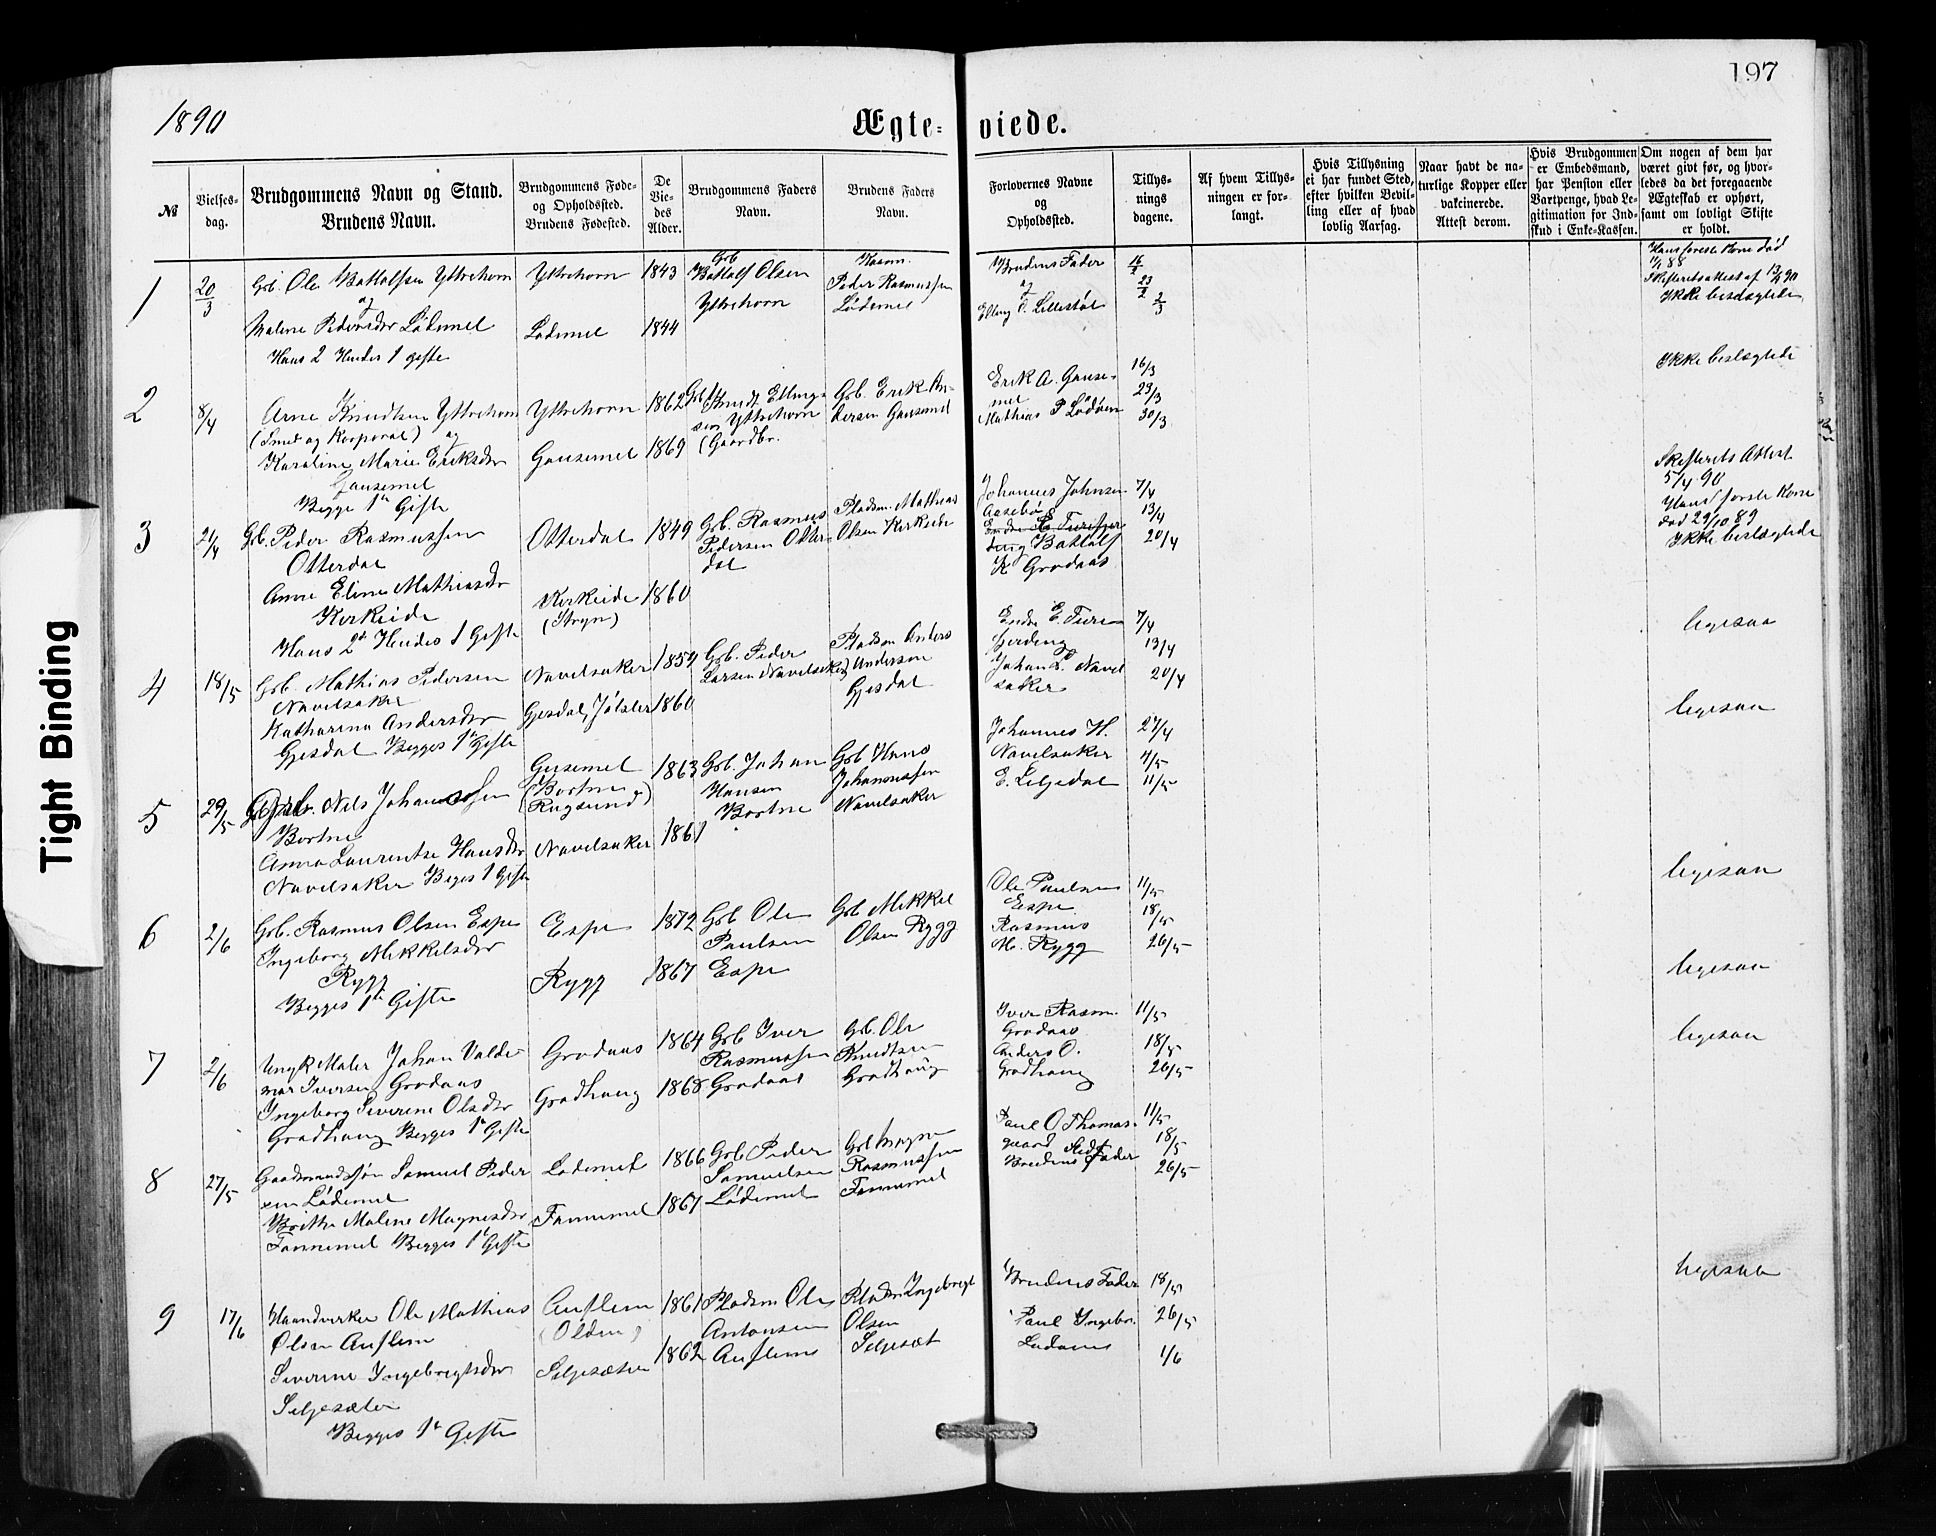 197
1890
Ægte-viede.
№
Vielses-
dag.
Brudgommens Navn og Stand.
Brudens Navn.
Brudgommens Føde-
og Opholdsted.
Brudens Fødested.
De
Vie-
des
Alder.
Brudgommens Faders
Navn.
Brudens Faders
Navn.
Forlovernes Navne
og
Opholdsted.
Tillys-
nings
dagene.
Af hvem Tillys-
ningen er for-
langt.
Hvis Tillysning
ei har fundet Sted,
efter hvilken Bevil-
ling eller af hvad
lovlig Aarsag.
Naar havt de na-
turlige Kopper eller
vakcinerede.
Attest derom.
Hvis Brudgommen
er Embedsmand,
har Pension eller
Vartpenge, hvad Le-
gitimation for Ind-
skud i Enke-Kassen.
Om nogen af dem har
været givt før, og hvor-
ledes da det foregaaende
Ægteskab er ophørt,
samt om lovligt Skifte
er holdt.
1
20/3
Gb. Ole Battolfsen Yttrehorn
og
Malene Pedersdr Lödemel
Hans 2 Hendes 1 gifte
Yttrehorn
Lødemel
1843
1844
Gb
Battolf Olsen
Yttrehorn
Husm.
Peder Rasmussen
Lødemel
Brudens Fader
og
Elling O. Lillestøl
16/2
23/2
2/3
Hans første Kone død
11/1 88
Skifteretsattest af 13/2 90
Ikke beslægtede
2
8/4
Arne Knudtsen Yttrehorn
(Smed og Korporal) og
Karoline Marie Eriksdr
Gausemel
Begge 1te Gifte
Yttrehorn
Gausemel
1862
1869
Gb Knudt Elling-
sen Yttrehorn
(Gaardbr.
Gb. Erik An-
dersen Gausemel
Erik A. Gause-
mel
Mathias P Lödöen
16/3
23/3
30/3
Ikke beslægtede
3
21/4
Gb. Peder Rasmussen
Otterdal
Anne Eline Mathiasdr
Kirkeide
Hans 2det Hendes 1 Gifte
Otterdal
Kirkeide
(Stryn)
1849
1860
Gb. Rasmus
Pedersen Otter-
dal
Pladsm. Mathias
Olsen Kirkeide
Johannes Johnsen
Aasebø
Battolf
K Grodaas
7/4
13/4
20/4
Skifterets Attest
5/4 90
Hans første Kone
død 29/10 89
Ikke beslægtede
4
18/5
Gb. Mathias Pedersen
Navelsaker
Katharina Andersdr
Gjesdal Begges 1te Gifte
Navelsaker
Gjesdal, Jölster
1854
1860
Gb. Peder
Larsen Navelsaker
Pladsm Anders
Andersen
Gjesdal
Endre E. Ture
Johan L. Navel
saker
7/4
13/4
20/4
ligesaa
5
29/5
Nils Johannessen
Bortne
Anna Laurentse Hansdr
Navelsaker Begges 1 Gifte
Gausemel
(Bortne
Rugsund)
Navelsaker
1863
1861
Gb. Johan
Hansen
Bortne
Gb Hans
Johannessen
Navelsaker
Johannes H.
Navelsaker
E. Liljedal
27/4
4/5
11/5
ligesaa
6
2/6
Gb. Rasmus Olsen Espe
Ingeborg Mikkelsdr
Rygg
Begges 1te Gifte
Espe
Rygg
1872
1867
Gb Ole
Paulsen
Espe
Gb Mikkel
Olsen Rygg
Ole Paulsen
Espe
Rasmus
M. Rygg
11/5
18/5
26/5
ligesaa
7
2/6
Ungk Maler Johan Valde-
mar Iversen Grodaas
Ingeborg Severine Olsdr
Grodhaug Begges 1te Gifte
Grodaas
Grodhaug
1864
1868
Gb Iver
Rasmussen
Grodaas
Gb. Ole
Knudtsen
Grodhaug
Iver Rasm.
Grodaas
Anders O.
Grodhaug
11/5
18/5
26/5
ligesaa
8
27/5
Gaardmandssøn Samuel Peder
sen Lödemel
Brithe Malene Magnesdr
Fannemel Begges 1te Gifte
Lödemel
Fannemel
1866
1867
Gb Peder
Samuelsen
Lödemel
Gb Magne
Rasmussen
Fannemel
Paul O Thomas-
gaard
Brudens Fader
11/5
18/5
26/5
ligesaa
9
17/6
Haandverker Ole Mathias
Olsen Auflem
Severine Ingebrigtsdr
Seljesæter
Begges 1te Gifte
Auflem
(Olden)
Seljesæter
1861
1862
Pladsm Ole
Antonsen
Auflem
Pladsm Ingebrigt
Olsen
Seljesæt
Brudens Fader
Paul Ingebr.
18/5
26/5
1/6
ligesaa
Tight Binding